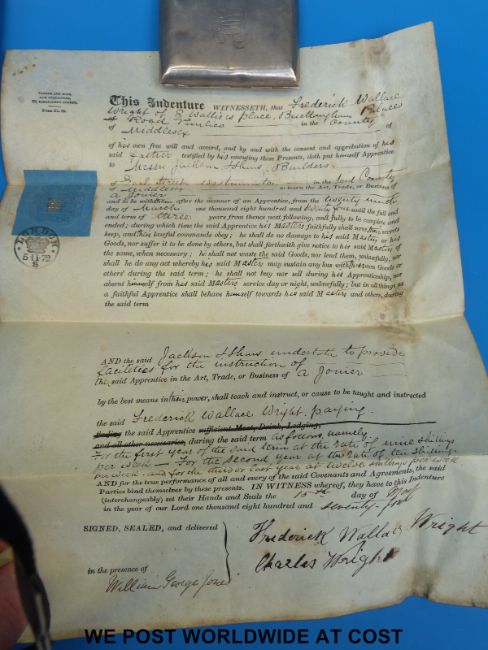 This Indenture WITNESSETH, that Frederick Wallace
Wright of 8 Wallis's place, Buckingham Palace
Road Pimlico in the County of
of Middlesex
of his own free will and accord, and by and with the consent and approbation of his
said Father testified by his executing these Presents, doth put himself Apprentice
to Messrs Jackson & Shaw, Builders
of Street Westminster in the said County
of Middlesex to learn the Art, Trade, or Business of
a Joiner
and to be with them after the manner of an Apprentice, from the twenty ninth
day of March one thousand eight hundred and seventy four until the full end
and term of three years from thence next following, and fully to be complete and
ended; during which time the said Apprentice his Masters faithfully shall serve, their secrets
keep, and their lawful commands obey; he shall do no damage to his said Masters or their
Goods, nor suffer it to be done by others, but shall forthwith give notice to her said Masters of
the same, when necessary; he shall not waste the said Goods, nor lend them, unlawfully, nor
shall he do any act whereby his said Masters may sustain any loss with their own Goods or
others' during the said term; he shall not buy nor sell during his Apprenticeship, nor
absent himself from his said Masters service day or night, unlawfully; but in all things as
a faithful Apprentice shall behave himself towards his said Masters and others, during
the said term
LONDON
6 11 72
AND the said Jackson & Shaw undertake to provide
facilities for the instruction of
the said Apprentice in the Art, Trade, or Business of a Joiner
by the best means in their power, shall teach and instruct, or cause to be taught and instructed
the said Frederick Wallace Wright, paying
the said Apprentice sufficient Meat, Drink, Lodging,
and all other necessaries, during the said term as follows, namely:
For the first year of the said term at the rate of nine shillings
per week — For the second year at the rate of ten shillings
per week and for the third or last year at twelve shillings per week
AND for the true performance of all and every of the said Covenants and Agreements, the said
Parties bind themselves by these presents. IN WITNESS whereof, they have to this Indenture
(interchangeably) set their Hands and Seals the 15th day of May
in the year of our Lord one thousand eight hundred and seventy-four
SIGNED, SEALED, and delivered
Frederick Wallace Wright
Charles Wright
in the presence of
William George Jones
WE POST WORLDWIDE AT COST